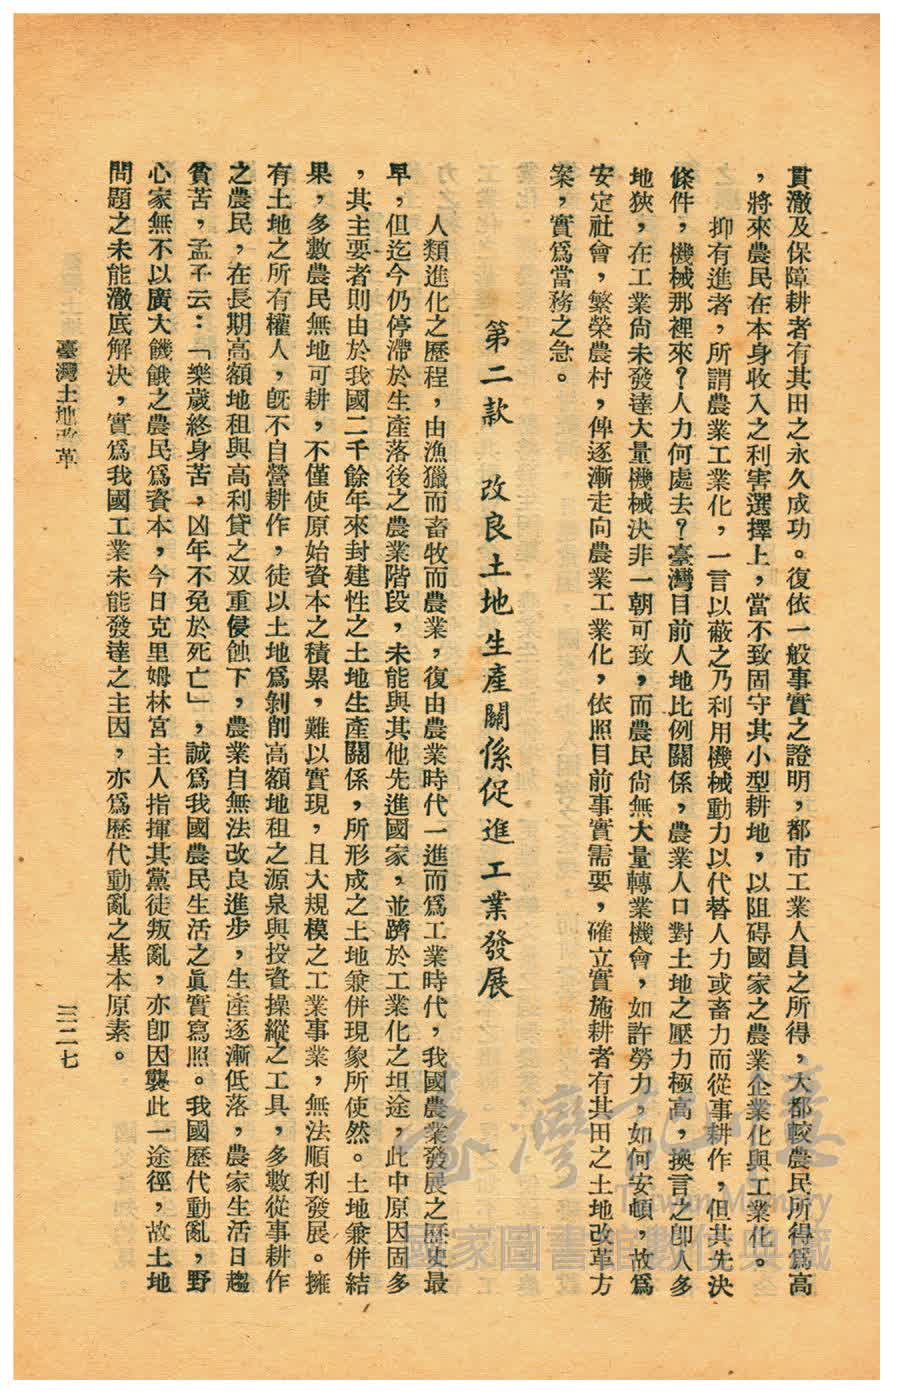 貫澈及保障耕者有其田之永久成功。復依一般事實之證明，都市工業人員之所得，大都較農民所得爲高
，將來農民在本身收入之利害選擇上，當不致固守其小型耕地，以阻碍國家之農業企業化與工業化。
抑有進者，所謂農業工業化，一言以蔽之乃利用機械動力以代替人力或畜力而從事耕作，但其先決
條件，機械那裡來？人力何處去？臺灣目前人地比例關係，農業人口對土地之壓力極高，換言之卽人多
地狹，在工業尙未發達大量機械決非一朝可致，而農民尙無大量轉業機會，如許勞力，如何安頓，故爲
安定社會，繁榮農村，俾逐漸走向農業工業化，依照目前事實需要，確立實施耕者有其田之土地改革方
案，實爲當務之急。
第二款　改良土地生產關係促進工業發展
人類進化之歷程，由漁獵而畜牧而農業，復由農業時代一進而爲工業時代，我國農業發展之歷史最
早，但迄今仍停滯於生產落後之農業階段，未能與其他先進國家，並躋於工業化之坦途，此中原因固多
，其主要者則由於我國二千餘年來封建性之土地生產關係，所形成之土地兼併現象所使然。土地兼併結
果，多數農民無地可耕，不僅使原始資本之積累，難以實現，且大規模之工業事業，無法順利發展。擁
有土地之所有權人，旣不自營耕作，徒以土地爲剝削高額地租之源泉與投資操縱之工具，多數從事耕作
之農民，在長期高額地租與高利貸之双重侵蝕下，農業自無法改良進步，生產逐漸低落，農家生活日趨
貧苦，孟子云：「樂歲終身苦，凶年不免於死亡」，誠爲我國農民生活之眞實寫照。我國歷代動亂，野
心家無不以廣大饑餓之農民爲資本，今日克里姆林宮主人指揮其黨徒叛亂，亦卽因襲此一途徑，故土地
問題之未能澈底解決，實爲我國工業未能發達之主因，亦爲歷代動亂之基本原素。
臺灣土地改革
三二七
臺灣記憶
Taiwan Memory
國家圖書館數位典藏